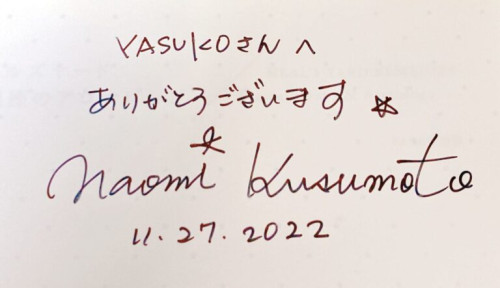 YASUKOさんへ
ありがとうございます☆
Naomi Kusumoto
11.27.2022